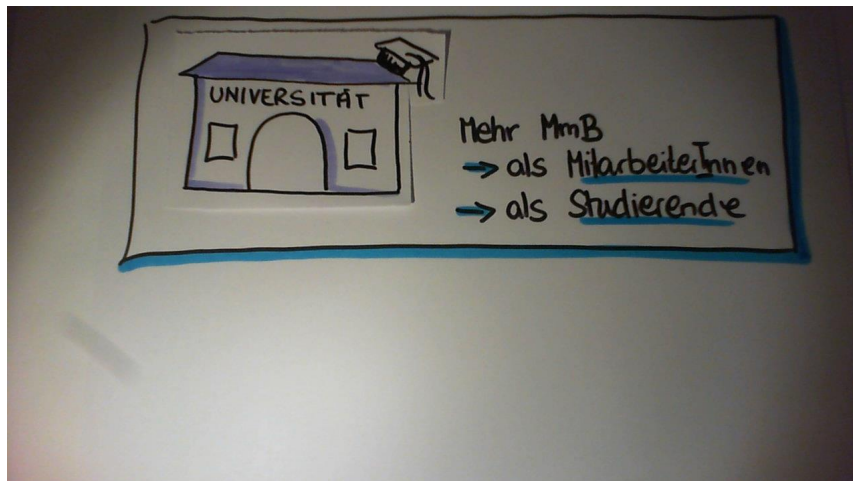 UNIVERSITÄT
Mehr MmB
→ als MitarbeiterInnen
→ als Studierende